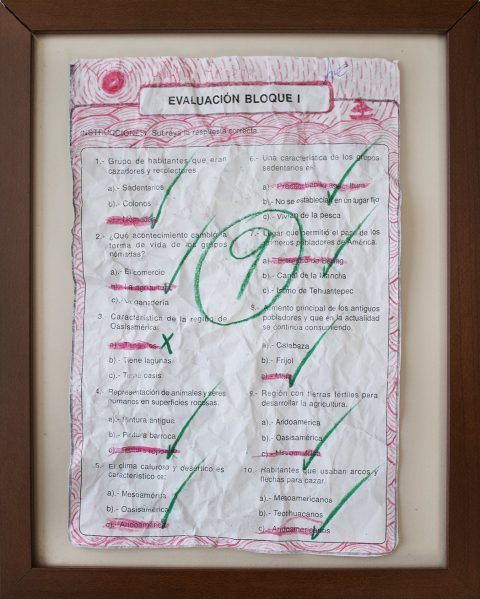 EVALUACIÓN BLOQUE I
INSTRUCCIONES: Subraya la respuesta correcta.
1.- Grupo de habitantes que eran
cazadores y recolectores
a).- Sedentarios
b).- Colonos
2.- ¿Qué acontecimiento cambió la
forma de vida de los grupos
nómadas?
a).- El comercio
b).- La agricultura
c).- La ganadería
3.- Característica de la región de
Oasisamérica.
X
b).- Tiene lagunas
c).- Tiene oasis
4.- Representación de animales y seres
humanos en superficies rocosas.
a).- Pintura antigua
b).- Pintura barroca
c).- Pintura rupestre
5.- El clima caluroso y desértico es
característico de:
a).- Mesoamérica
b).- Oasisamérica
c).- Aridoamérica
6.- Una característica de los grupos
sedentarios es:
a).- Practicaban la agricultura
b).- No se establecían en un lugar fijo
c).- Vivían de la pesca
7.- Lugar que permitió el paso de los
primeros pobladores de América.
a).- Estrecho de Bering
b).- Canal de la Mancha
c).- Istmo de Tehuantepec
8.- Alimento principal de los antiguos
pobladores y que en la actualidad
se continúa consumiendo.
a).- Calabaza
b).- Frijol
c).- Maíz
9.- Región con tierras fértiles para
desarrollar la agricultura.
a).- Aridoamérica
b).- Oasisamérica
c).- Mesoamérica
10.- Habitantes que usaban arcos y
flechas para cazar.
a).- Mesoamericanos
b).- Teotihuacanos
c).- Aridoamericanos
9